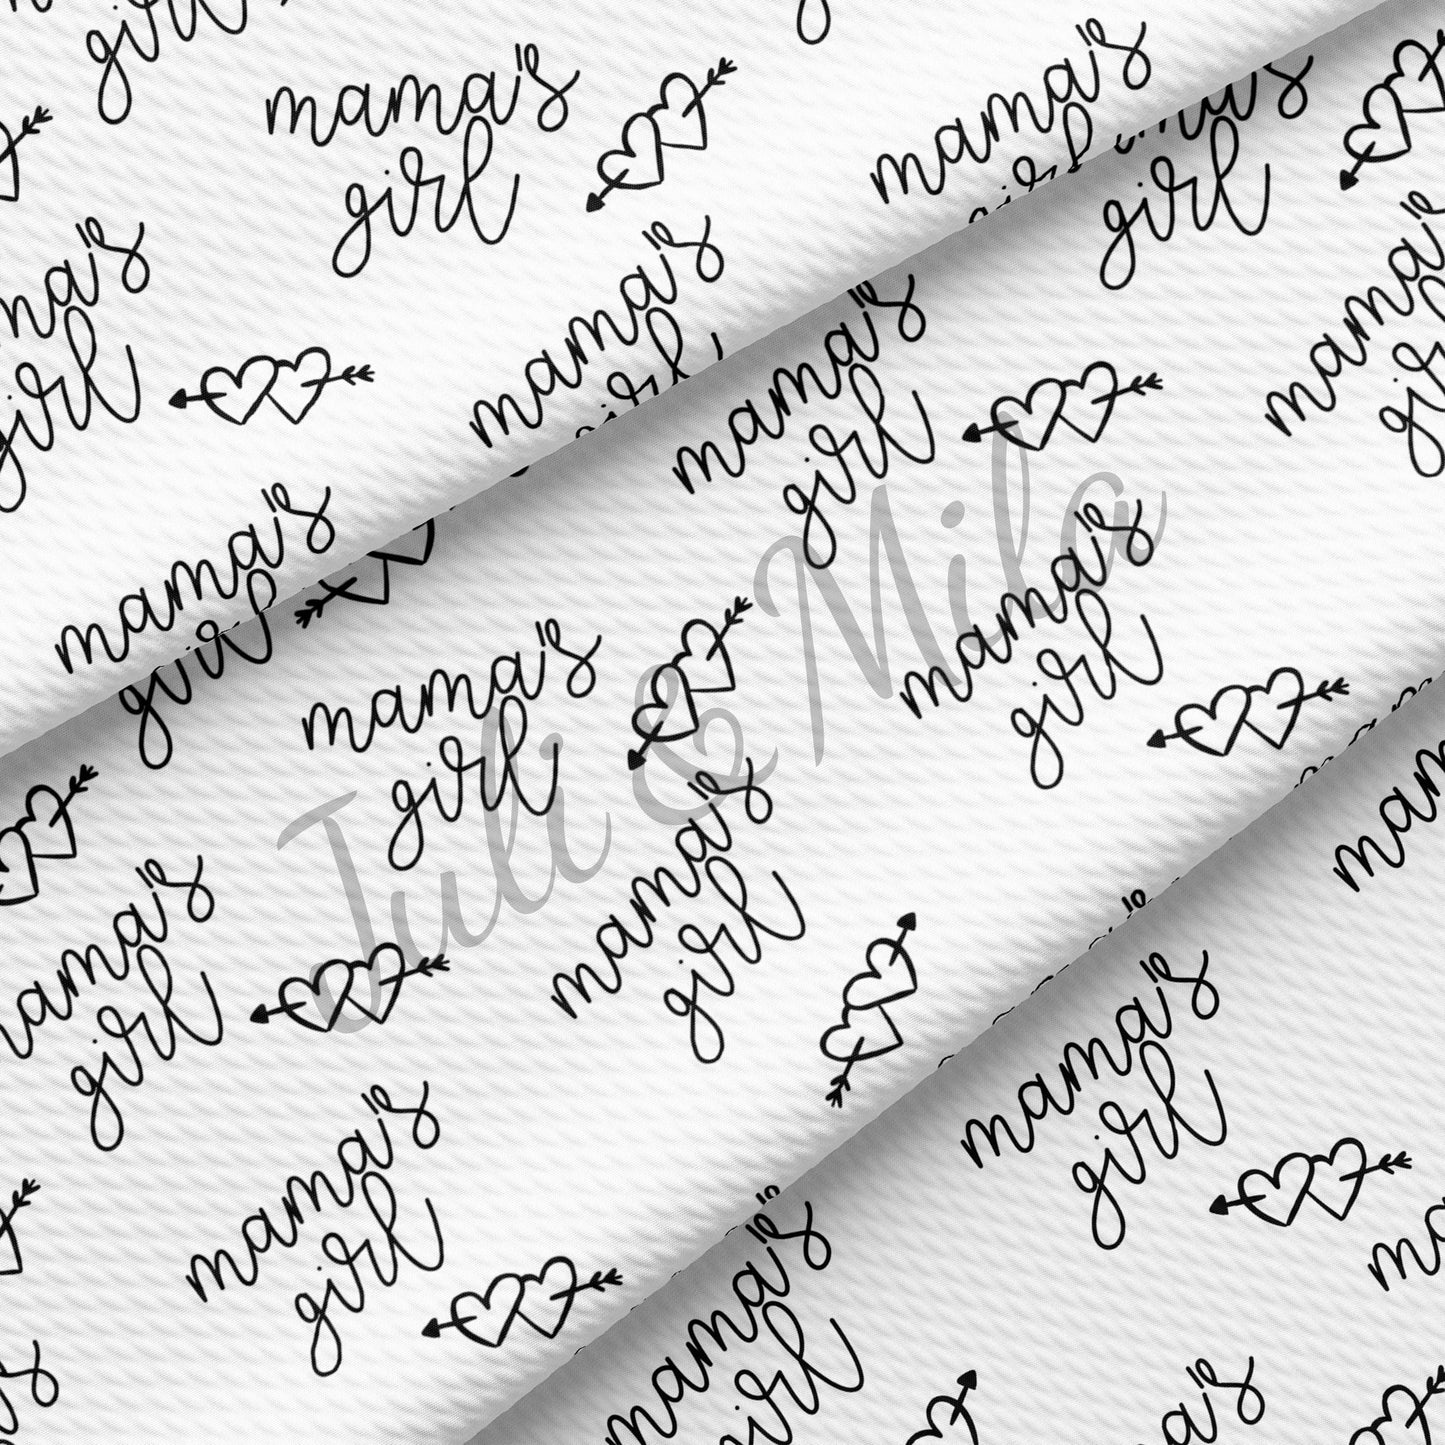 mama's
girl
mama's
girl
mama's
girl
mama's
girl
mama's
girl
mama's
girl
mama's
girl
mama's
girl
mama's
girl
mama's
girl
mama's
girl
mama's
girl
mama's
girl
mama's
girl
mama's
girl
Juli & Mila